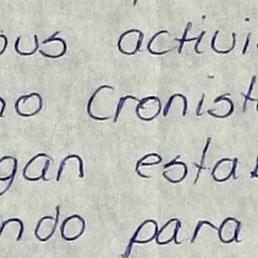 ous activi
no Cronist
gan esta
ndo para